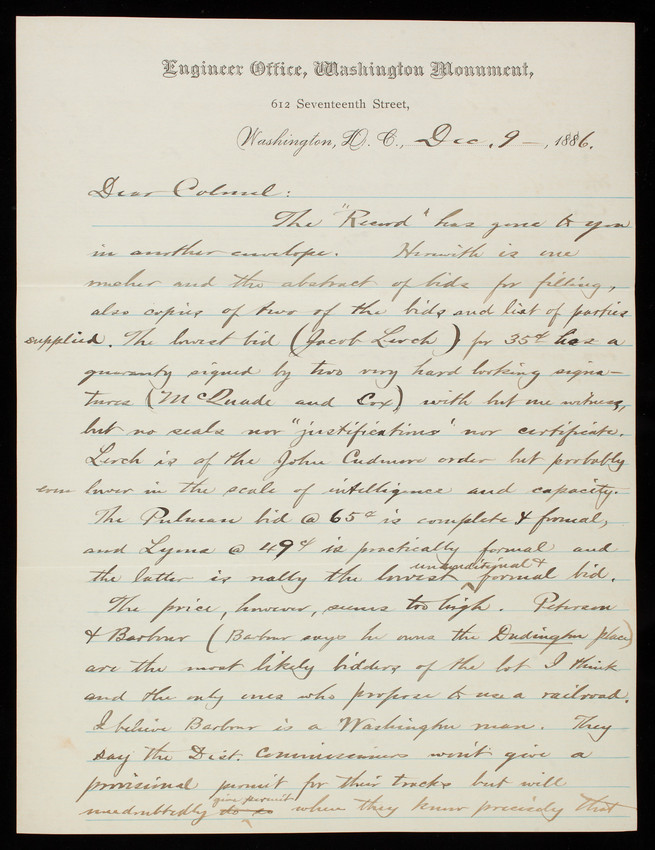 Engineer Office, Washington Monument,
612 Seventeenth Street,
Washington, D. C., Dec. 9 —, 1886.
Dear Colonel:
The "Record" has gone to you
in another envelope. Herewith is one
and the abstract of bids for filling,
also copies of two of the bids and list of parties
supplied. The lowest bid (Jacob Lerch) for 35¢ has a
guaranty signed by two very hard looking signa-
tures (McQuade and Cox) with but one witness,
but no seals nor "justifications" nor certificate.
Lerch is of the John Cudmore order but probably
even lower in the scale of intelligence and capacity.
The Pulman bid @ 65¢ is complete & formal,
and Lyons @ 49¢ is practically formal and
unconditional &
the latter is really the lowest ^ formal bid.
The price, however, seems too high. Peterson
& Barbour (Barbour says he owns the Dudington place)
are the most likely bidders of the lot I think
and the only ones who propose to use a railroad.
I believe Barbour is a Washington man. They
say the Dist. Commissioners won't give a
provisional permit for their tracks but will
give permit
undoubtedly do so ^ when they know precisely that